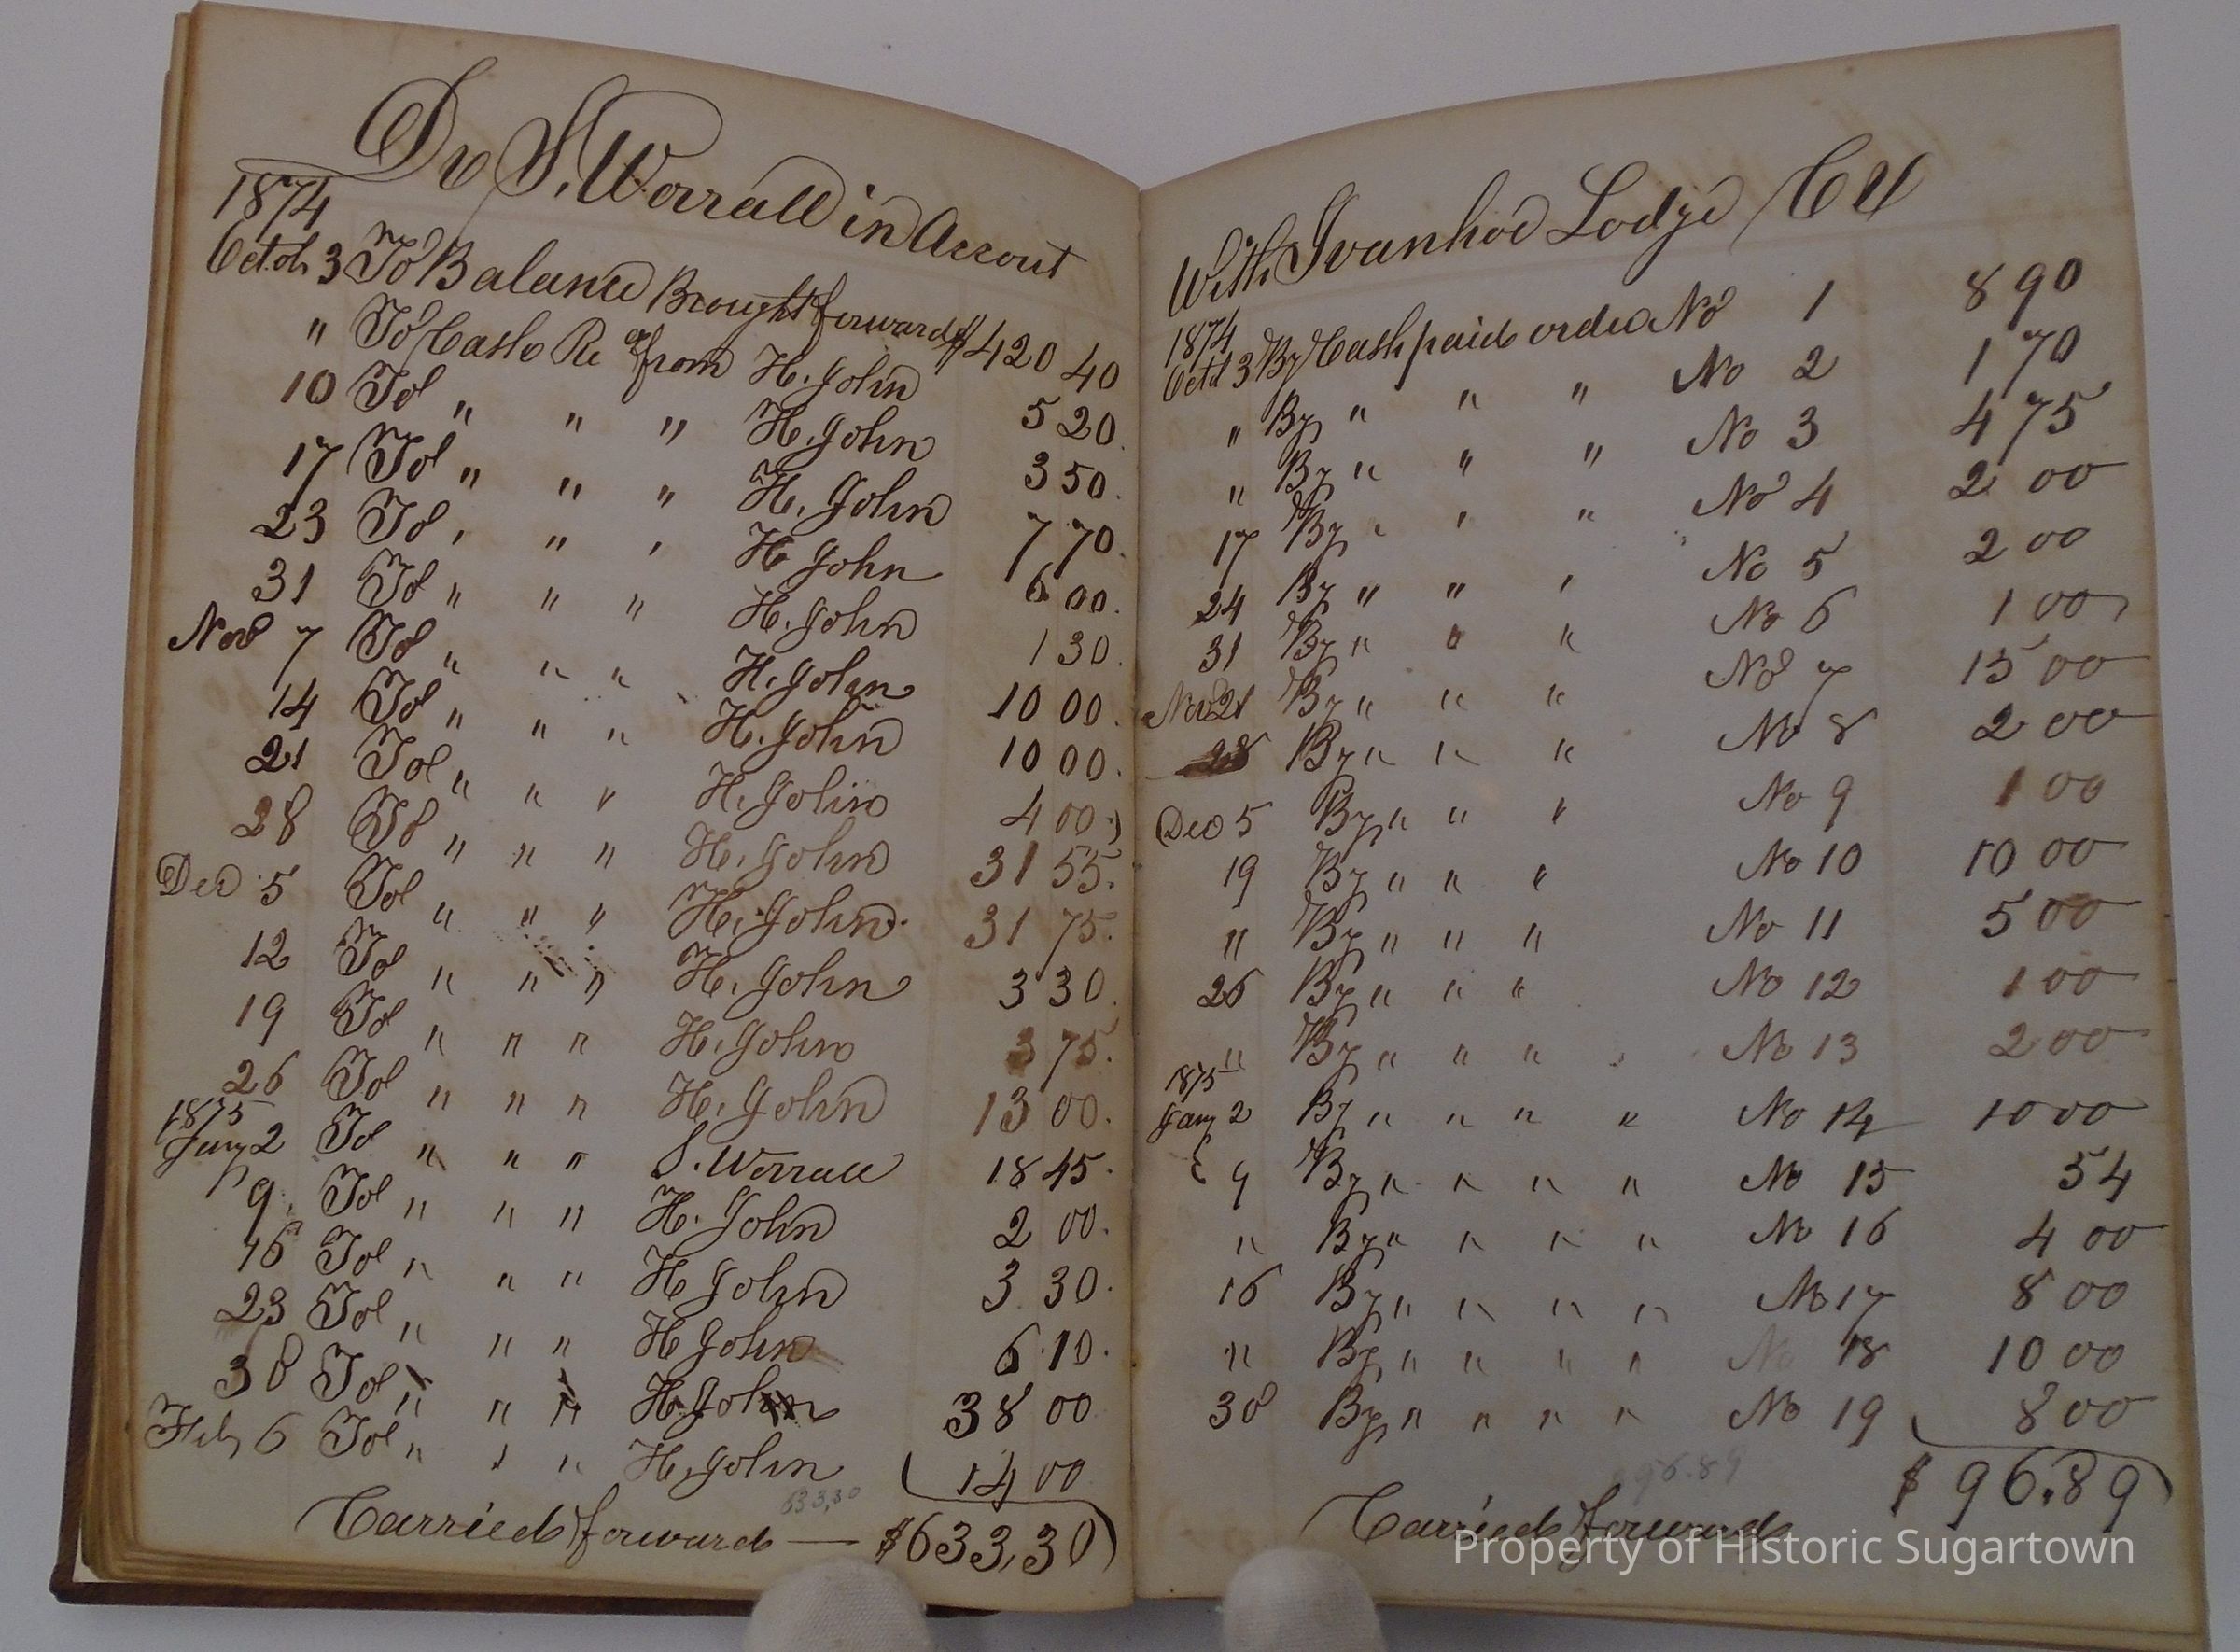 Dr S. Worrall in Accout
1874
Octob 3 To Balance Brought forward $420 40
" To Cash Rec from H. John 5 20
10 To " " " H. John 3 50
17 To " " " H. John 7 70
23 To " " " H John 6 00
31 To " " " H. John 1 30
Nov 7 To " " " H. John 10 00
14 To " " " H. John 10 00
21 To " " " H. John 4 00
28 To " " " H. John 31 55
Dec 5 To " " " H. John 31 75
12 To " " " H. John 3 30
19 To " " " H. John 3 75
26 To " " " H. John 13 00
1875
Jany 2 To " " " S. Worrall 18 45
9 To " " " H. John 2 00
16 To " " " H John 3 30
23 To " " " H John 6 10
30 To " " " H. John 38 00
Feb 6 To " " " H. John 14 00
633,30
Carried forward — $633,30
With Ivanhoe Lodge Cr
1874
Octd 3 By Cash paid order No 1 8 90
" By " " " No 2 1 70
" By " " " No 3 4 75
17 By " " " No 4 2 00
24 By " " " No 5 2 00
31 By " " " No 6 1 00
Nov 21 By " " " No 7 15 00
28 By " " " No 8 2 00
Dec 5 By " " " No 9 1 00
19 By " " " No 10 10 00
" By " " " No 11 5 00
26 By " " " No 12 1 00
" By " " " No 13 2 00
1875
Jany 2 By " " " " No 14 10 00
9 By " " " " No 15 54
" By " " " " No 16 4 00
16 By " " " " No 17 8 00
" By " " " " No 18 10 00
30 By " " " " No 19 8 00
96.89
$ 96.89
Carried forward
Property of Historic Sugartown